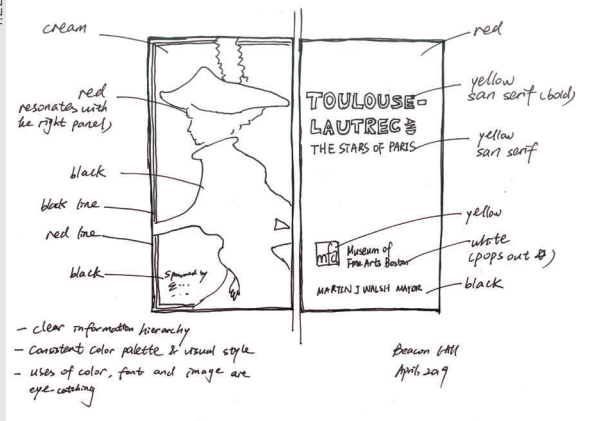 cream
red
resonates with
he right panel)
black
black line
red line
black
Sponsored by
TOULOUSE-
LAUTREC AND
THE STARS OF PARIS
mfa
Museum of
Fine Arts Boston
MARTIN J WALSH MAYOR
red
yellow
san serif (bold)
yellow
san serif
yellow
white
(pops out)
black
- clear information hierarchy
- Consistent color palette & visual style
- uses of color, font and image are
eye-catching
Beacon Hill
April 2019